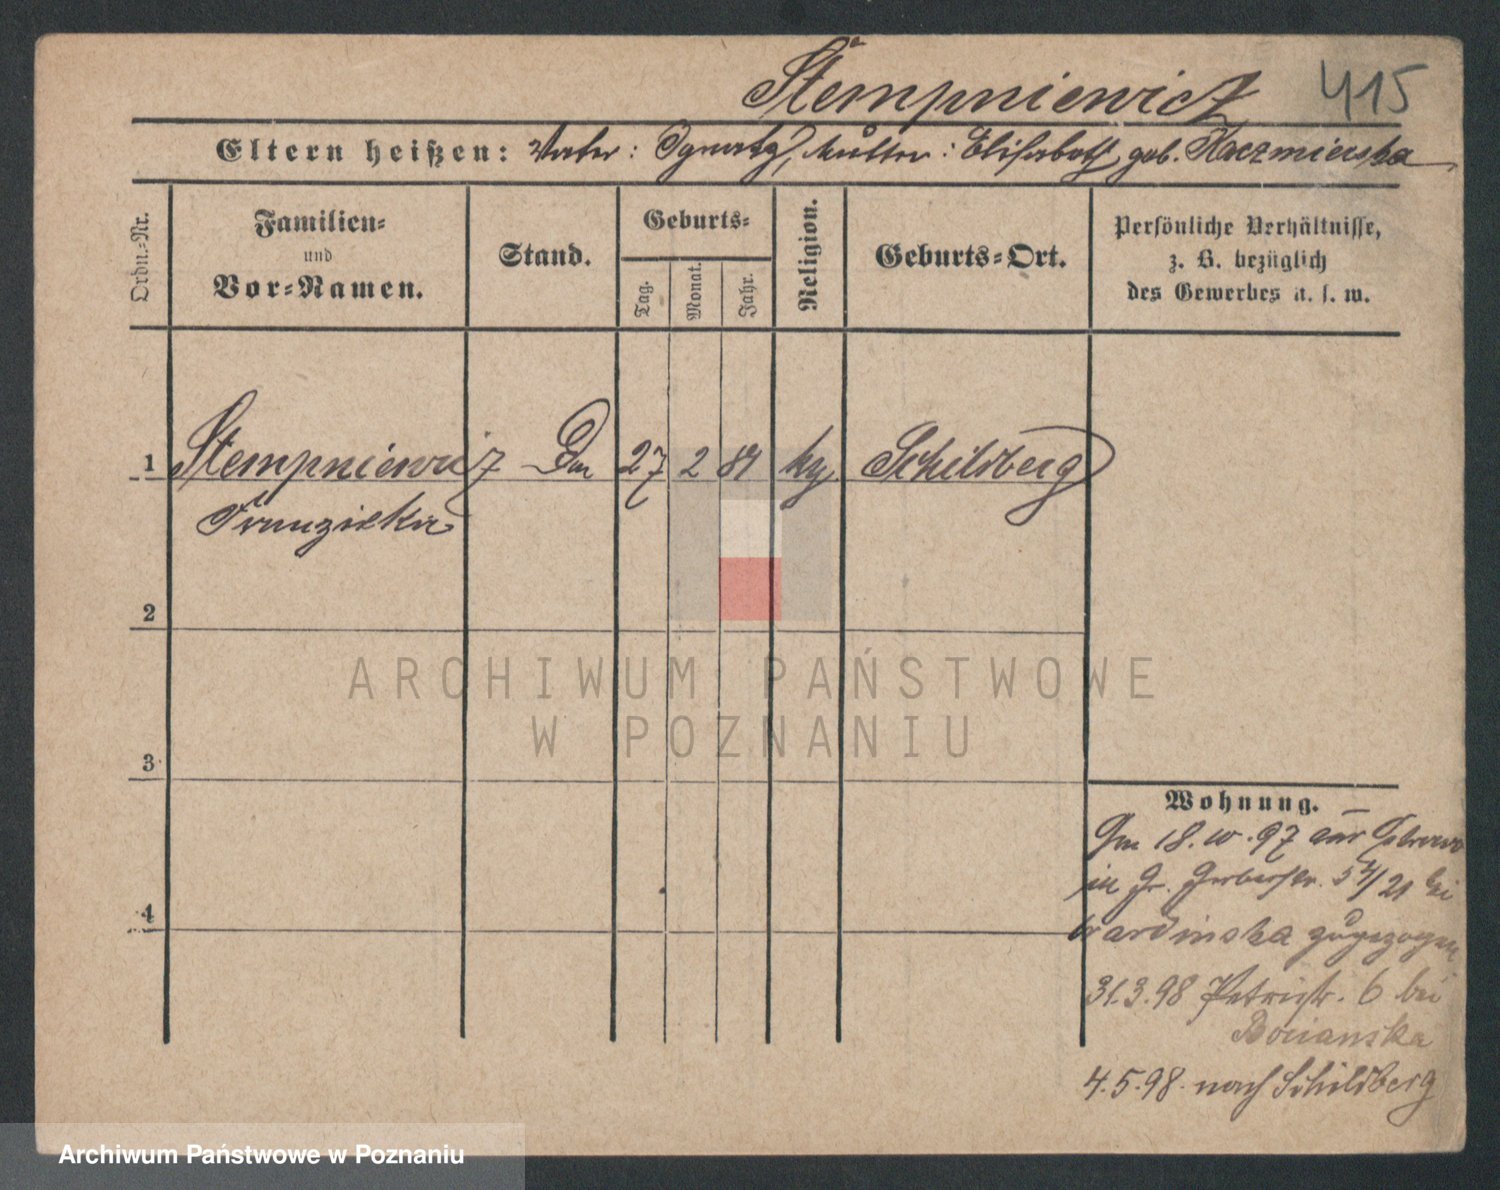 Stempniewicz 415
Eltern heißen: Vater: Ignatz, Mutter: Elisabeth geb. Kaczmierska
Ordn.-Nr.
Familien-
und
Vor-Namen.
Stand.
Geburts-
Tag.
Monat.
Jahr.
Religion.
Geburts-Ort.
Persönliche Verhältnisse,
z. B. bezüglich
des Gewerbes u. s. w.
1 Stempniewicz 27 2 84 Schildberg
Franziska
2
ARCHIWUM PAŃSTWOWE
W POZNANIU
3
Wohnung.
Am 18. 97 aus
in Gr. Gerberstr. 54/21 bei
zugezogen
31.3.98 Petristr. 6 bei
Bocianska
4
4.5.98. nach Schildberg
Archiwum Państwowe w Poznaniu